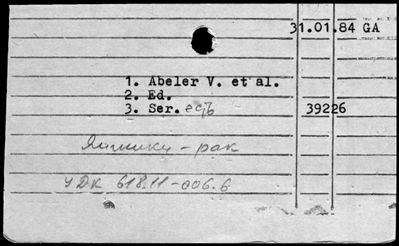 31.01.84 GA
1. Abeler V. et al.
2. Ed.
3. Ser. есть
39226
Яичники - рак
УДК 618.11-006.6